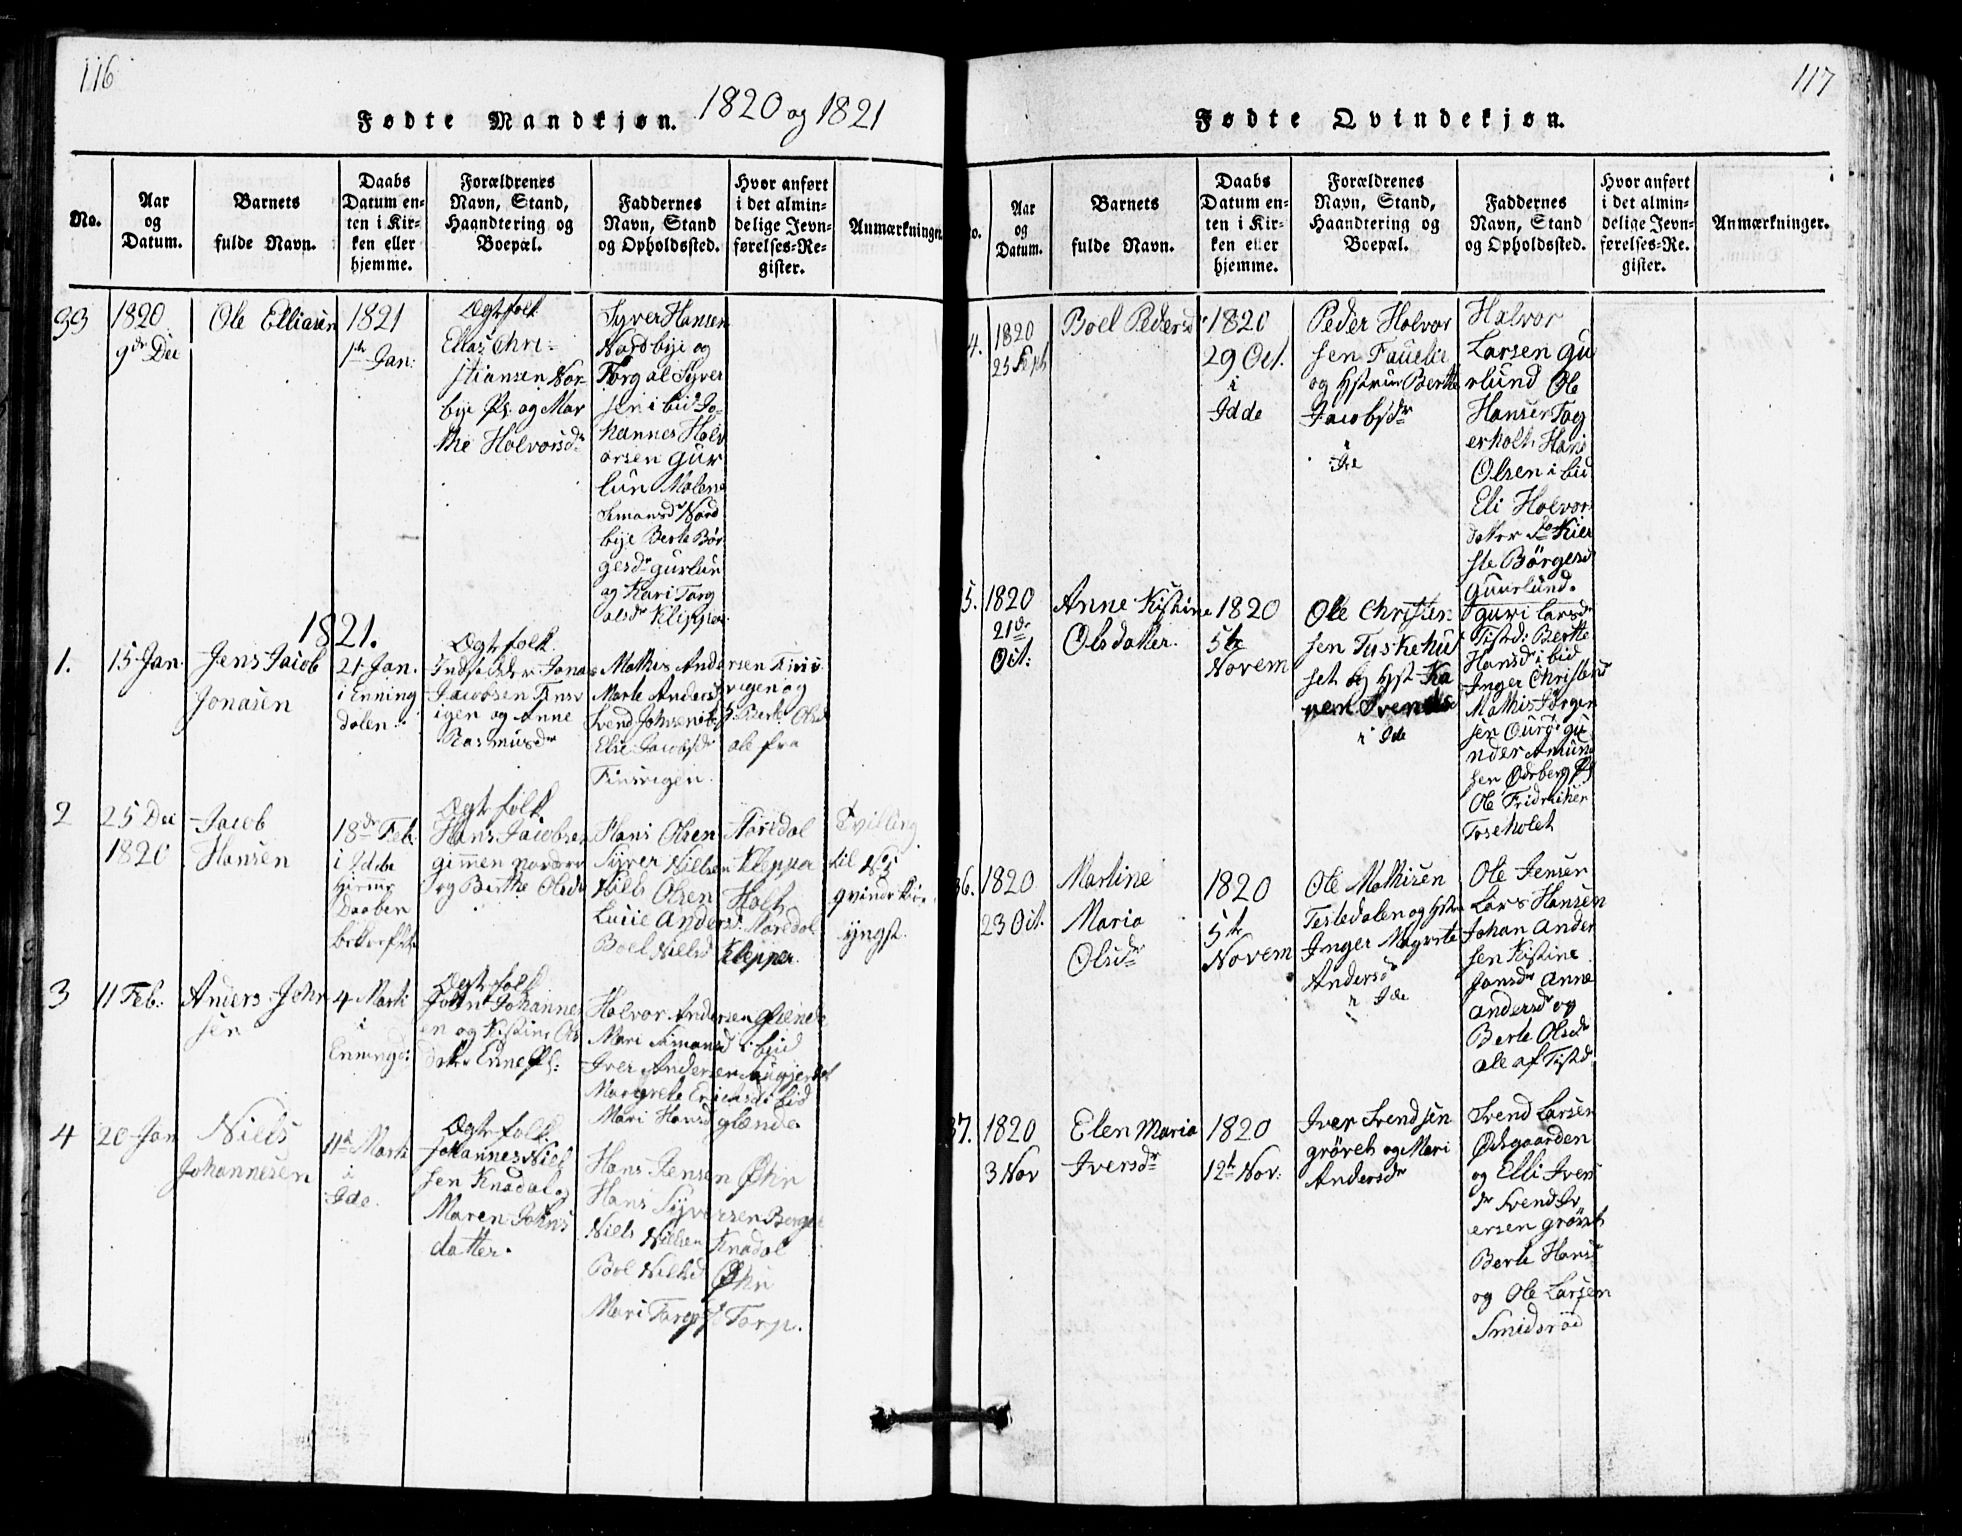 116
Fødte Mandkjøn. 1820 og 1821
No.
Aar
og
Datum.
Barnets
fulde Navn.
Daabs
Datum en-
ten i Kir-
ken eller
hjemme.
Forældrenes
Navn, Stand,
Haandtering og
Boepæl.
Faddernes
Navn, Stand
og Opholdssted.
Hvor anført
i det almin-
delige Jevn-
førelses-Re-
gister.
Anmærkninger.
1820
9de Dec
Ole Elliasen
1821
1te Jan:
Ægtfolk
Ellas Chri-
stiansen Nor-
bye Pl. og Mar
the Holvorsdr
Syver Hansen
Nordbye og
Torgal Syver
sen i bid Jo-
hannes Holv
orsen Gur
lun Malene
Simonsdr Nord
bye Berte Bør
gesdr Gurlun
og Kari Torg
alsdr Klipper.
1821.
1.
15 Jan
Jens Jacob
Jonasen
21 Jan.
i Enning
dalen.
Ægtfolk
Jonas
Jacobsen
igen og Anne
Rasmusdr
Mathis Andersen
Marte Andersd vigen og
Svend Johnsen Berte Olsd
Elie Jacobsdr ale fra
Finsvigen.
2
25 Dec
1820
Jacob
Hansen
18de Feb.
i Idde
Daaben
Ægtfolk
Hans Jacobsen
og Berthe Olsdr
Hans Olsen
Syver Nielsen Klepper
Niels Olsen Holt
Lucie Andersd.
Boel Nielsd Klepper.
Tvilling
til No 5
qvindekiø.
yngst.
3
11 Feb:
Anders John
sen
4 Marti
i
Enningd:
Ægtfolk
John Johannes
en og Kistine Ols
datter Enne Pl:
Holvor Andersen Glende
Mari Simonsd i bid
Iver Andersen
Margrete Ericksd i bid
Mari Hansd glende
4
20 Jan
Niels
Johannesen
11te Marti
i
Ide.
Ægtfolk.
Johannes Niel
sen Knadal og
Maren Johns
datter.
Hans Jensen Øhn
Hans Syversen Berger
Niels Nielsen Knadal
Boel Nielsd Øhn
Mari Torgsd Torp.
117
Fødte Qvindekjøn.
No.
Aar
og
Datum.
Barnets
fulde Navn.
Daabs
Datum en-
ten i Kir-
ken eller
hjemme.
Forældrenes
Navn, Stand,
Haandtering og
Boepæl.
Faddernes
Navn, Stand
og Opholdssted.
Hvor anført
i det almin-
delige Jevn-
førelses-Re-
gister.
Anmærkninger.
4.
1820
25 Sept
Boel Pedersdr
1820
29 Oct.
i
Idde
Peder Holvor
sen
og Hstrue Berthe
Jacobsdr
Holvor
Larsen Gu
rlund Ole
Hansen Tag
erholt Hans
Olsen i bid
Eli Holvor
datter
ste Børgesd
Guurlund.
5.
1820
21de
Oct:
Anne Kistine
Olsdatter.
1820
5te
Novem
Ole Christen
sen Tuskehu
set og Hst Ka
ren Svendsd
i Ide
Guri Larsdr
Tistd: Berthe
Hansdr i bid
Inger Christensd
Mathis Jørgen
sen
nder Amun
sen Ødeberg Pl
Ole Fridrichsen
Toseholet
36.
1820
23 Oct.
Martine
Maria
Olsdr
1820
5te
Novem
Ole Mathisen
Testedalen og Hstru
Inger Magrete
Andersdr
i Ide
Ole Jensen
Lars Hansen
Johan Ander
sen Kistine
Jansdr Anne
Andersdr og
Berte Olsdr
ale af Tistd.
37.
1820
3 Nov
Elen Maria
Iversdr
1820
12te Nov:
Iver Svendsen
grøvet og Mari
Andersdr
Svend Larsen
Ødegaarden
og Elli Ivers
dr Svend Iv
ersen grøvet
Berte Hansd
og Ole Larsen
Smidsrød